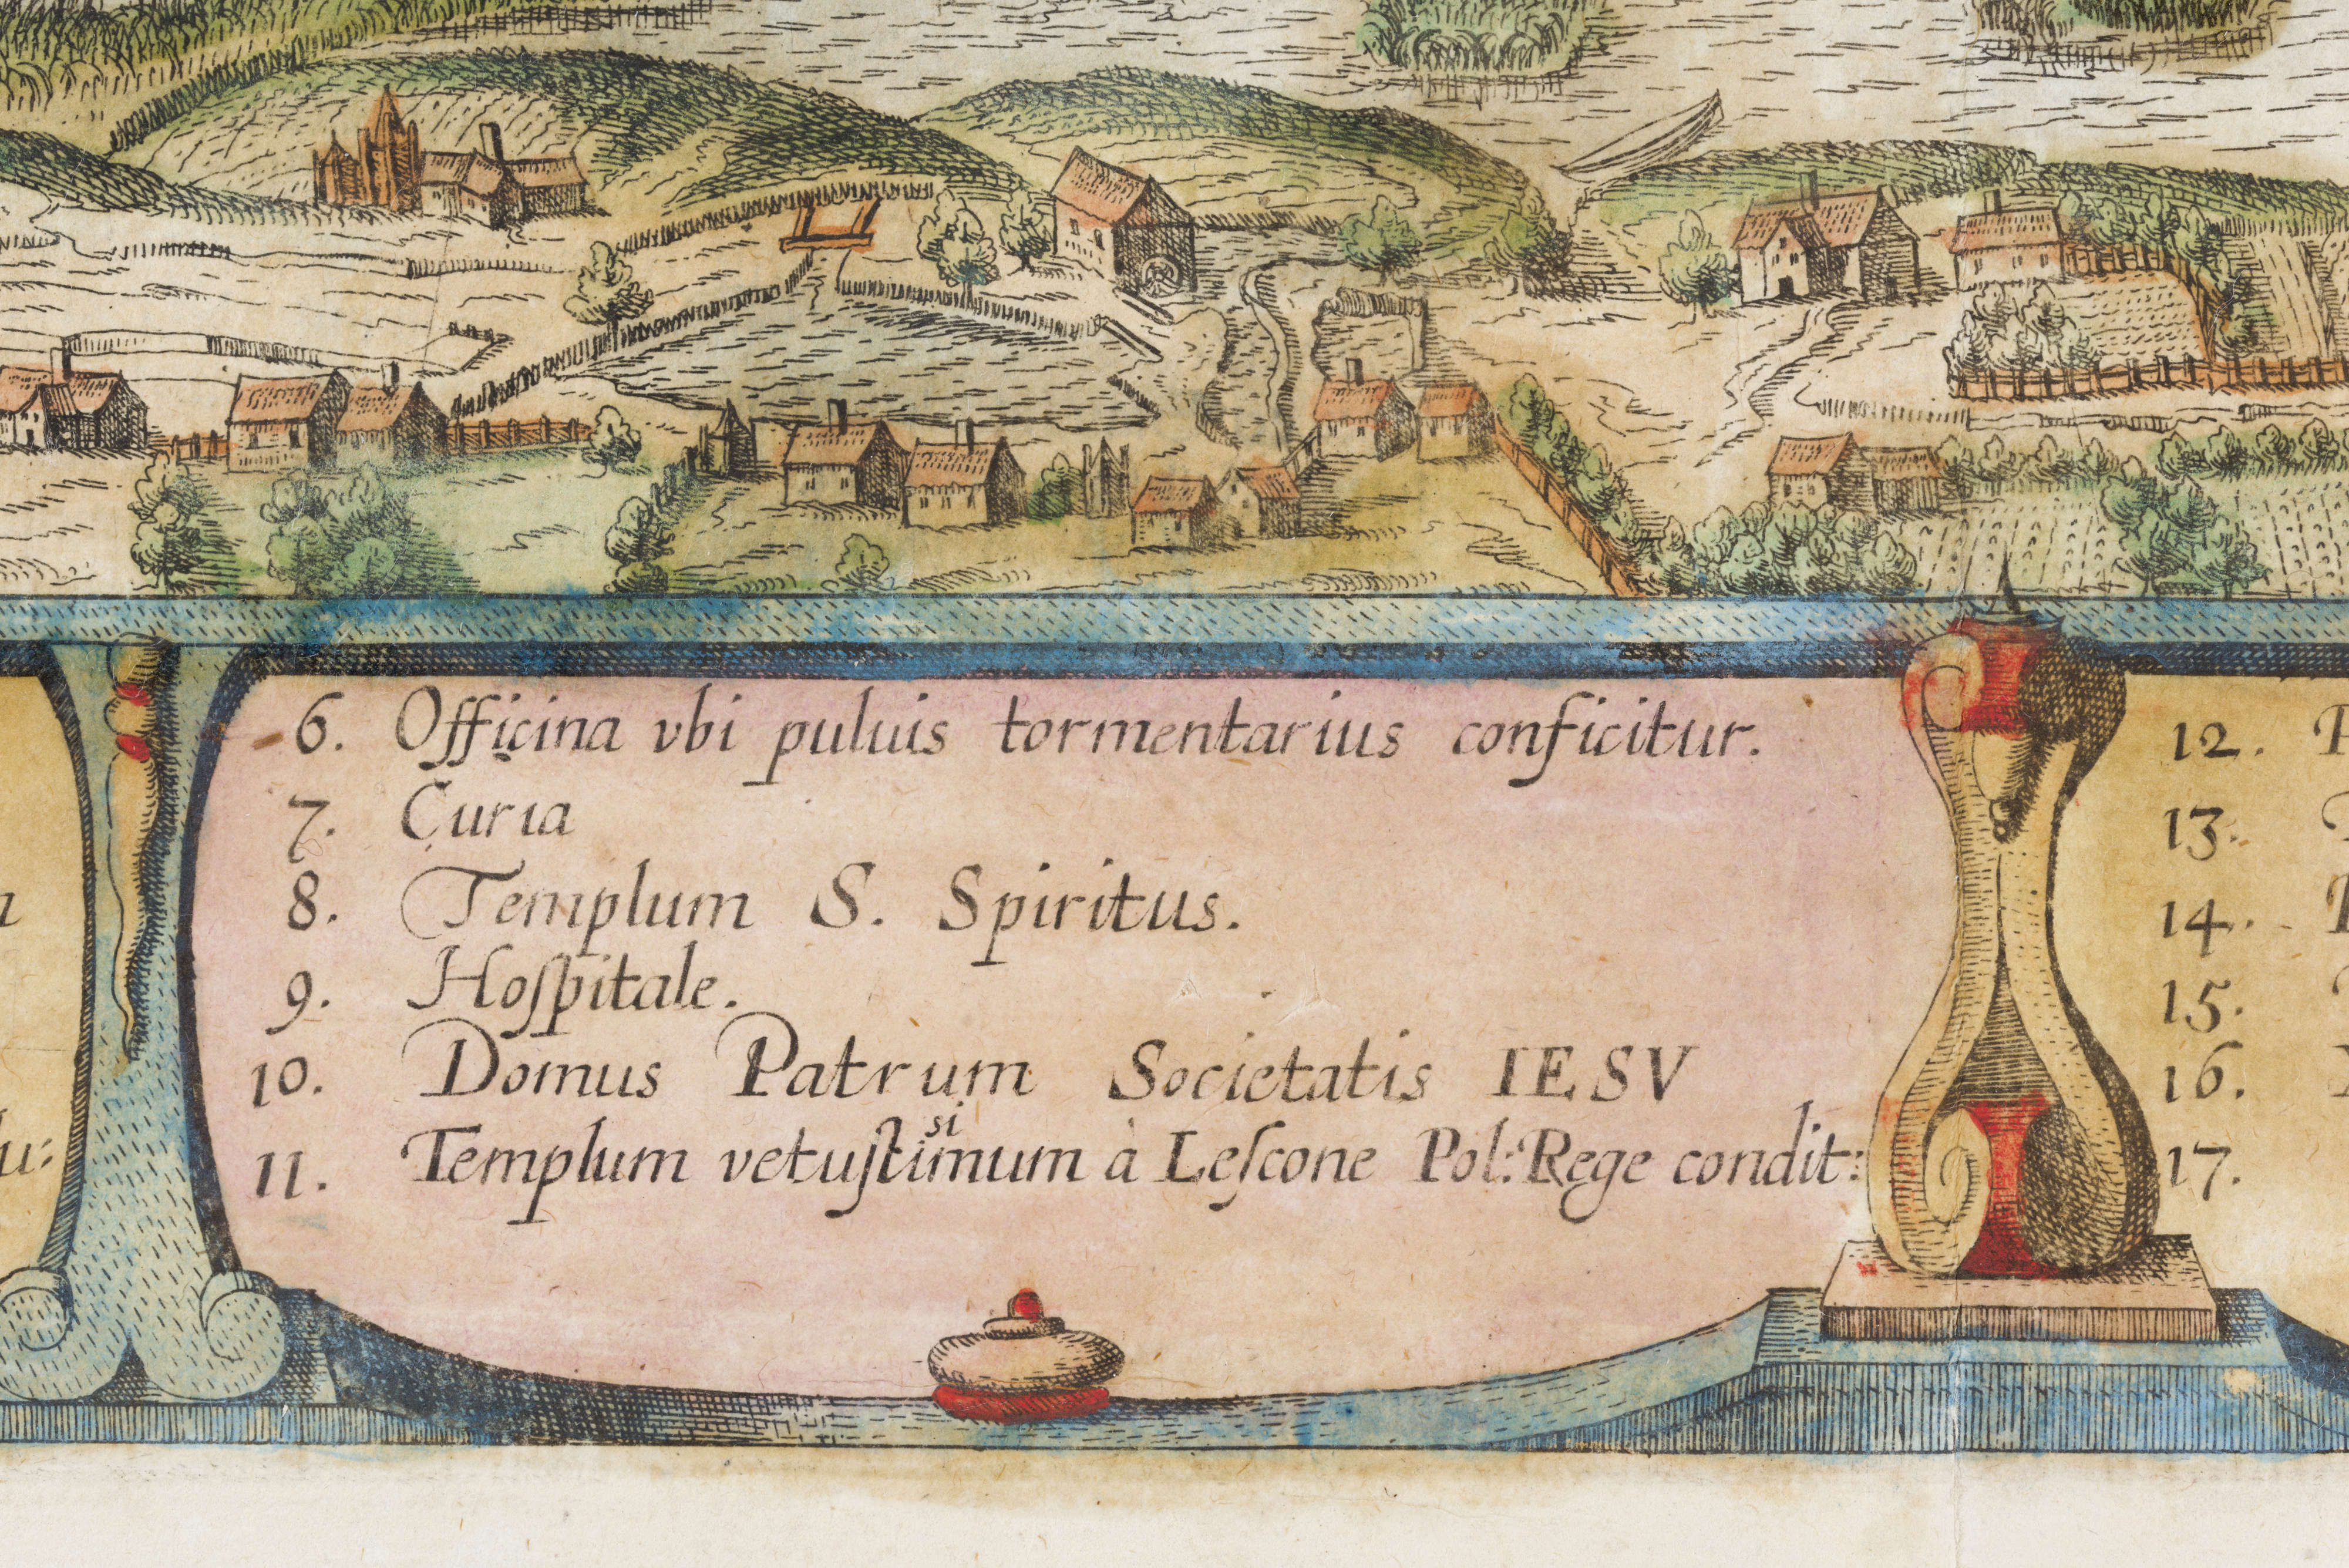 6. Officina vbi puluis tormentarius conficitur.
7. Curia
8. Templum S. Spiritus.
9. Hoſpitale.
10. Domus Patrum Societatis IESV
si
11. Templum vetuſtimum à Leſcone Pol: Rege condit:
12.
13.
14.
15.
16.
17.